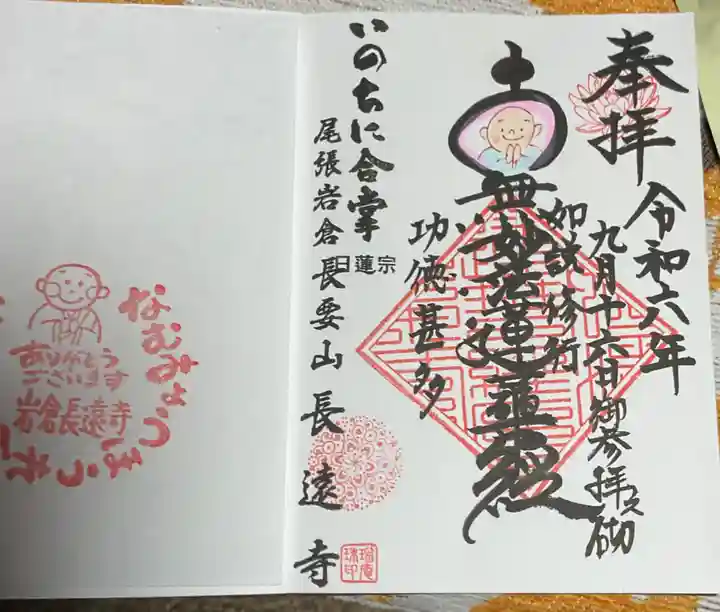 奉拝
令和六年
九月十六日御参拝之砌
如説修行
南無妙法蓮華経
功徳甚多
いのちに合掌
日蓮宗
尾張岩倉長要山長遠寺
ありがとう
ございます
岩倉長遠寺
なむみょうほうれ